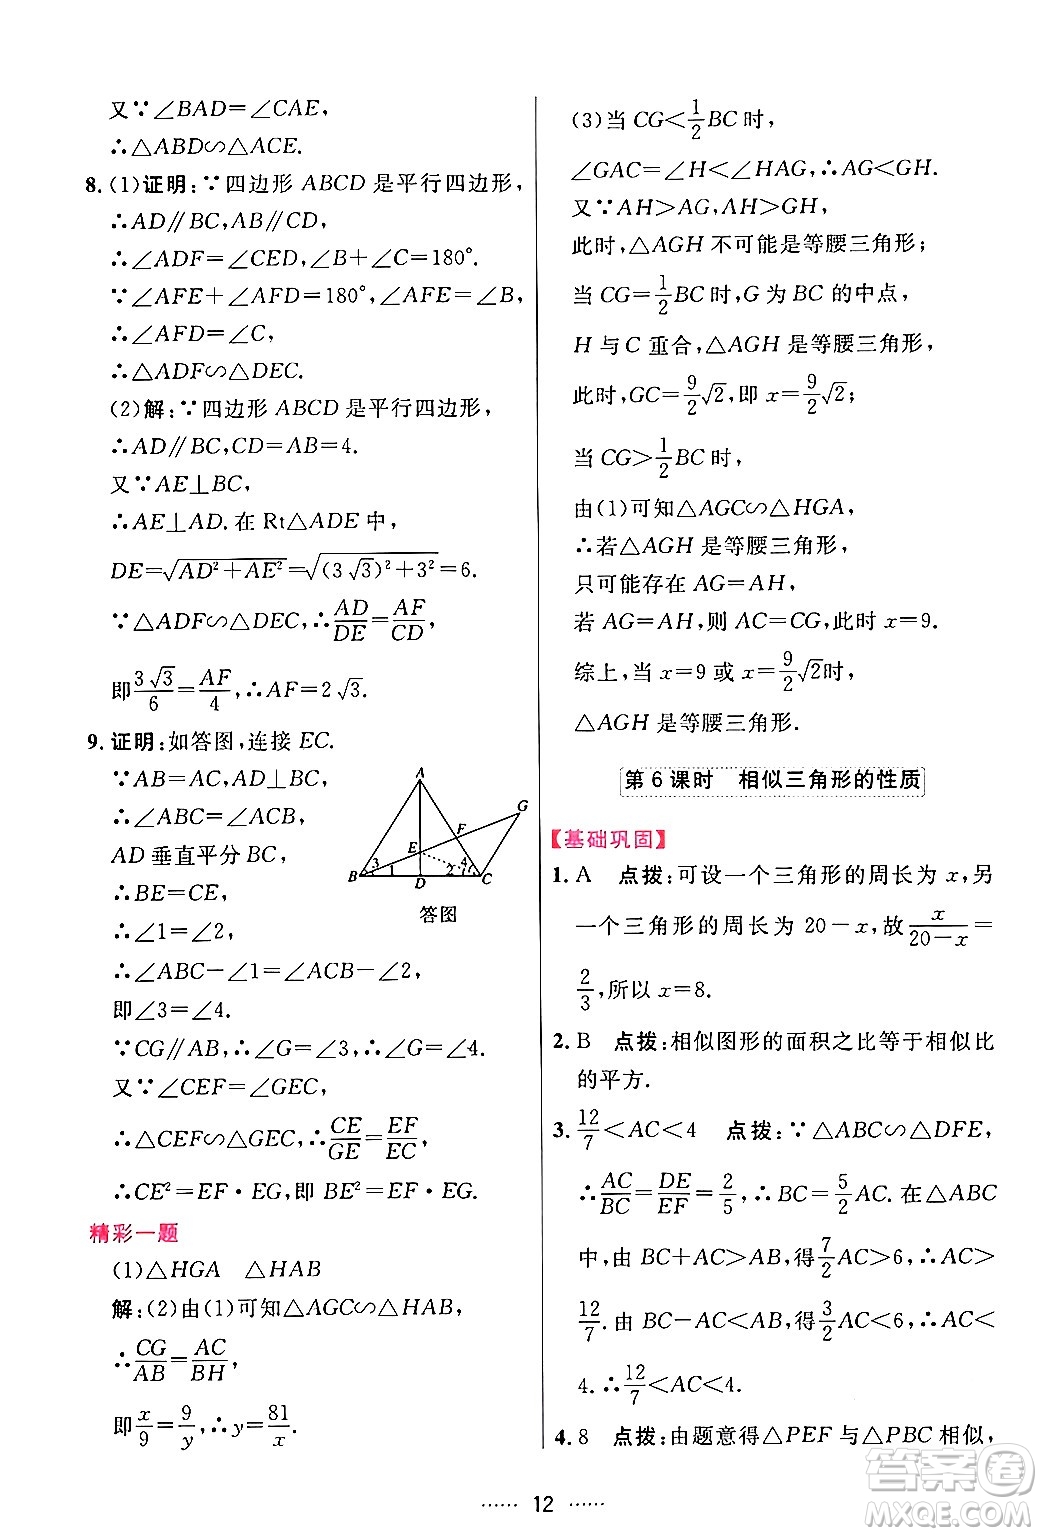 又∵∠BAD=∠CAE,
∴△ABD∽△ACE.
8.(1)证明:∵四边形 ABCD 是平行四边形,
∴AD∥BC,AB∥CD,
∴∠ADF=∠CED,∠B+∠C=180°.
∵∠AFE+∠AFD=180°,∠AFE=∠B,
∴∠AFD=∠C,
∴△ADF∽△DEC.
(2)解:∵四边形 ABCD 是平行四边形,
∴AD∥BC,CD=AB=4.
又∵AE⊥BC,
∴AE⊥AD.在 Rt△ADE 中,
DE=√(AD²+AE²)=√((3√3)²+3²)=6.
∵△ADF∽△DEC,∴AD/DE=AF/CD,
即3√3/6=AF/4,∴AF=2√3.
9.证明:如答图,连接 EC.
∵AB=AC,AD⊥BC,
AD 垂直平分 BC,
∴BE=CE,
∴∠1=∠2,
∴∠ABC-∠1=∠ACB-∠2,
即∠3=∠4.
A
G
F
E
3
4
1
2
B
D
C
答图
∵CG∥AB,∴∠G=∠3,∴∠G=∠4.
又∵∠CEF=∠GEC,
∴△CEF∽△GEC,∴CE/GE=EF/EC,
∴CE²=EF·EG,即 BE²=EF·EG.
精彩一题
(1)△HGA △HAB
解:(2)由(1)可知△AGC∽△HAB,
∴CG/AB=AC/BH,
即x/9=9/y,∴y=81/x.
(3)当 CG<1/2BC 时,
∠GAC=∠H<∠HAG,∴AG<GH.
又∵AH>AG,AH>GH,
此时,△AGH 不可能是等腰三角形;
当 CG=1/2BC 时,G 为 BC 的中点,
H 与 C 重合,△AGH 是等腰三角形,
此时,GC=9/2√2,即 x=9/2√2;
当 CG>1/2BC 时,
由(1)可知△AGC∽△HGA,
∴若△AGH 是等腰三角形,
只可能存在 AG=AH,
若 AG=AH,则 AC=CG,此时 x=9.
综上,当 x=9 或 x=9/2√2时,
△AGH 是等腰三角形.
第 6 课时 相似三角形的性质
【基础巩固】
1.A 点拨:可设一个三角形的周长为 x,另
一个三角形的周长为 20-x,故x/(20-x)=
2/3,所以 x=8.
2.B 点拨:相似图形的面积之比等于相似比
的平方.
3.12/7<AC<4 点拨:∵△ABC∽△DFE,
∴AC/BC=DE/EF=2/5,∴BC=5/2AC.在△ABC
中,由 BC+AC>AB,得7/2AC>6,∴AC>
12/7.由 BC-AC<AB,得3/2AC<6,∴AC<
4.∴12/7<AC<4.
4.8 点拨:由题意得△PEF 与△PBC 相似,
12
答案圈
MXQE.COM